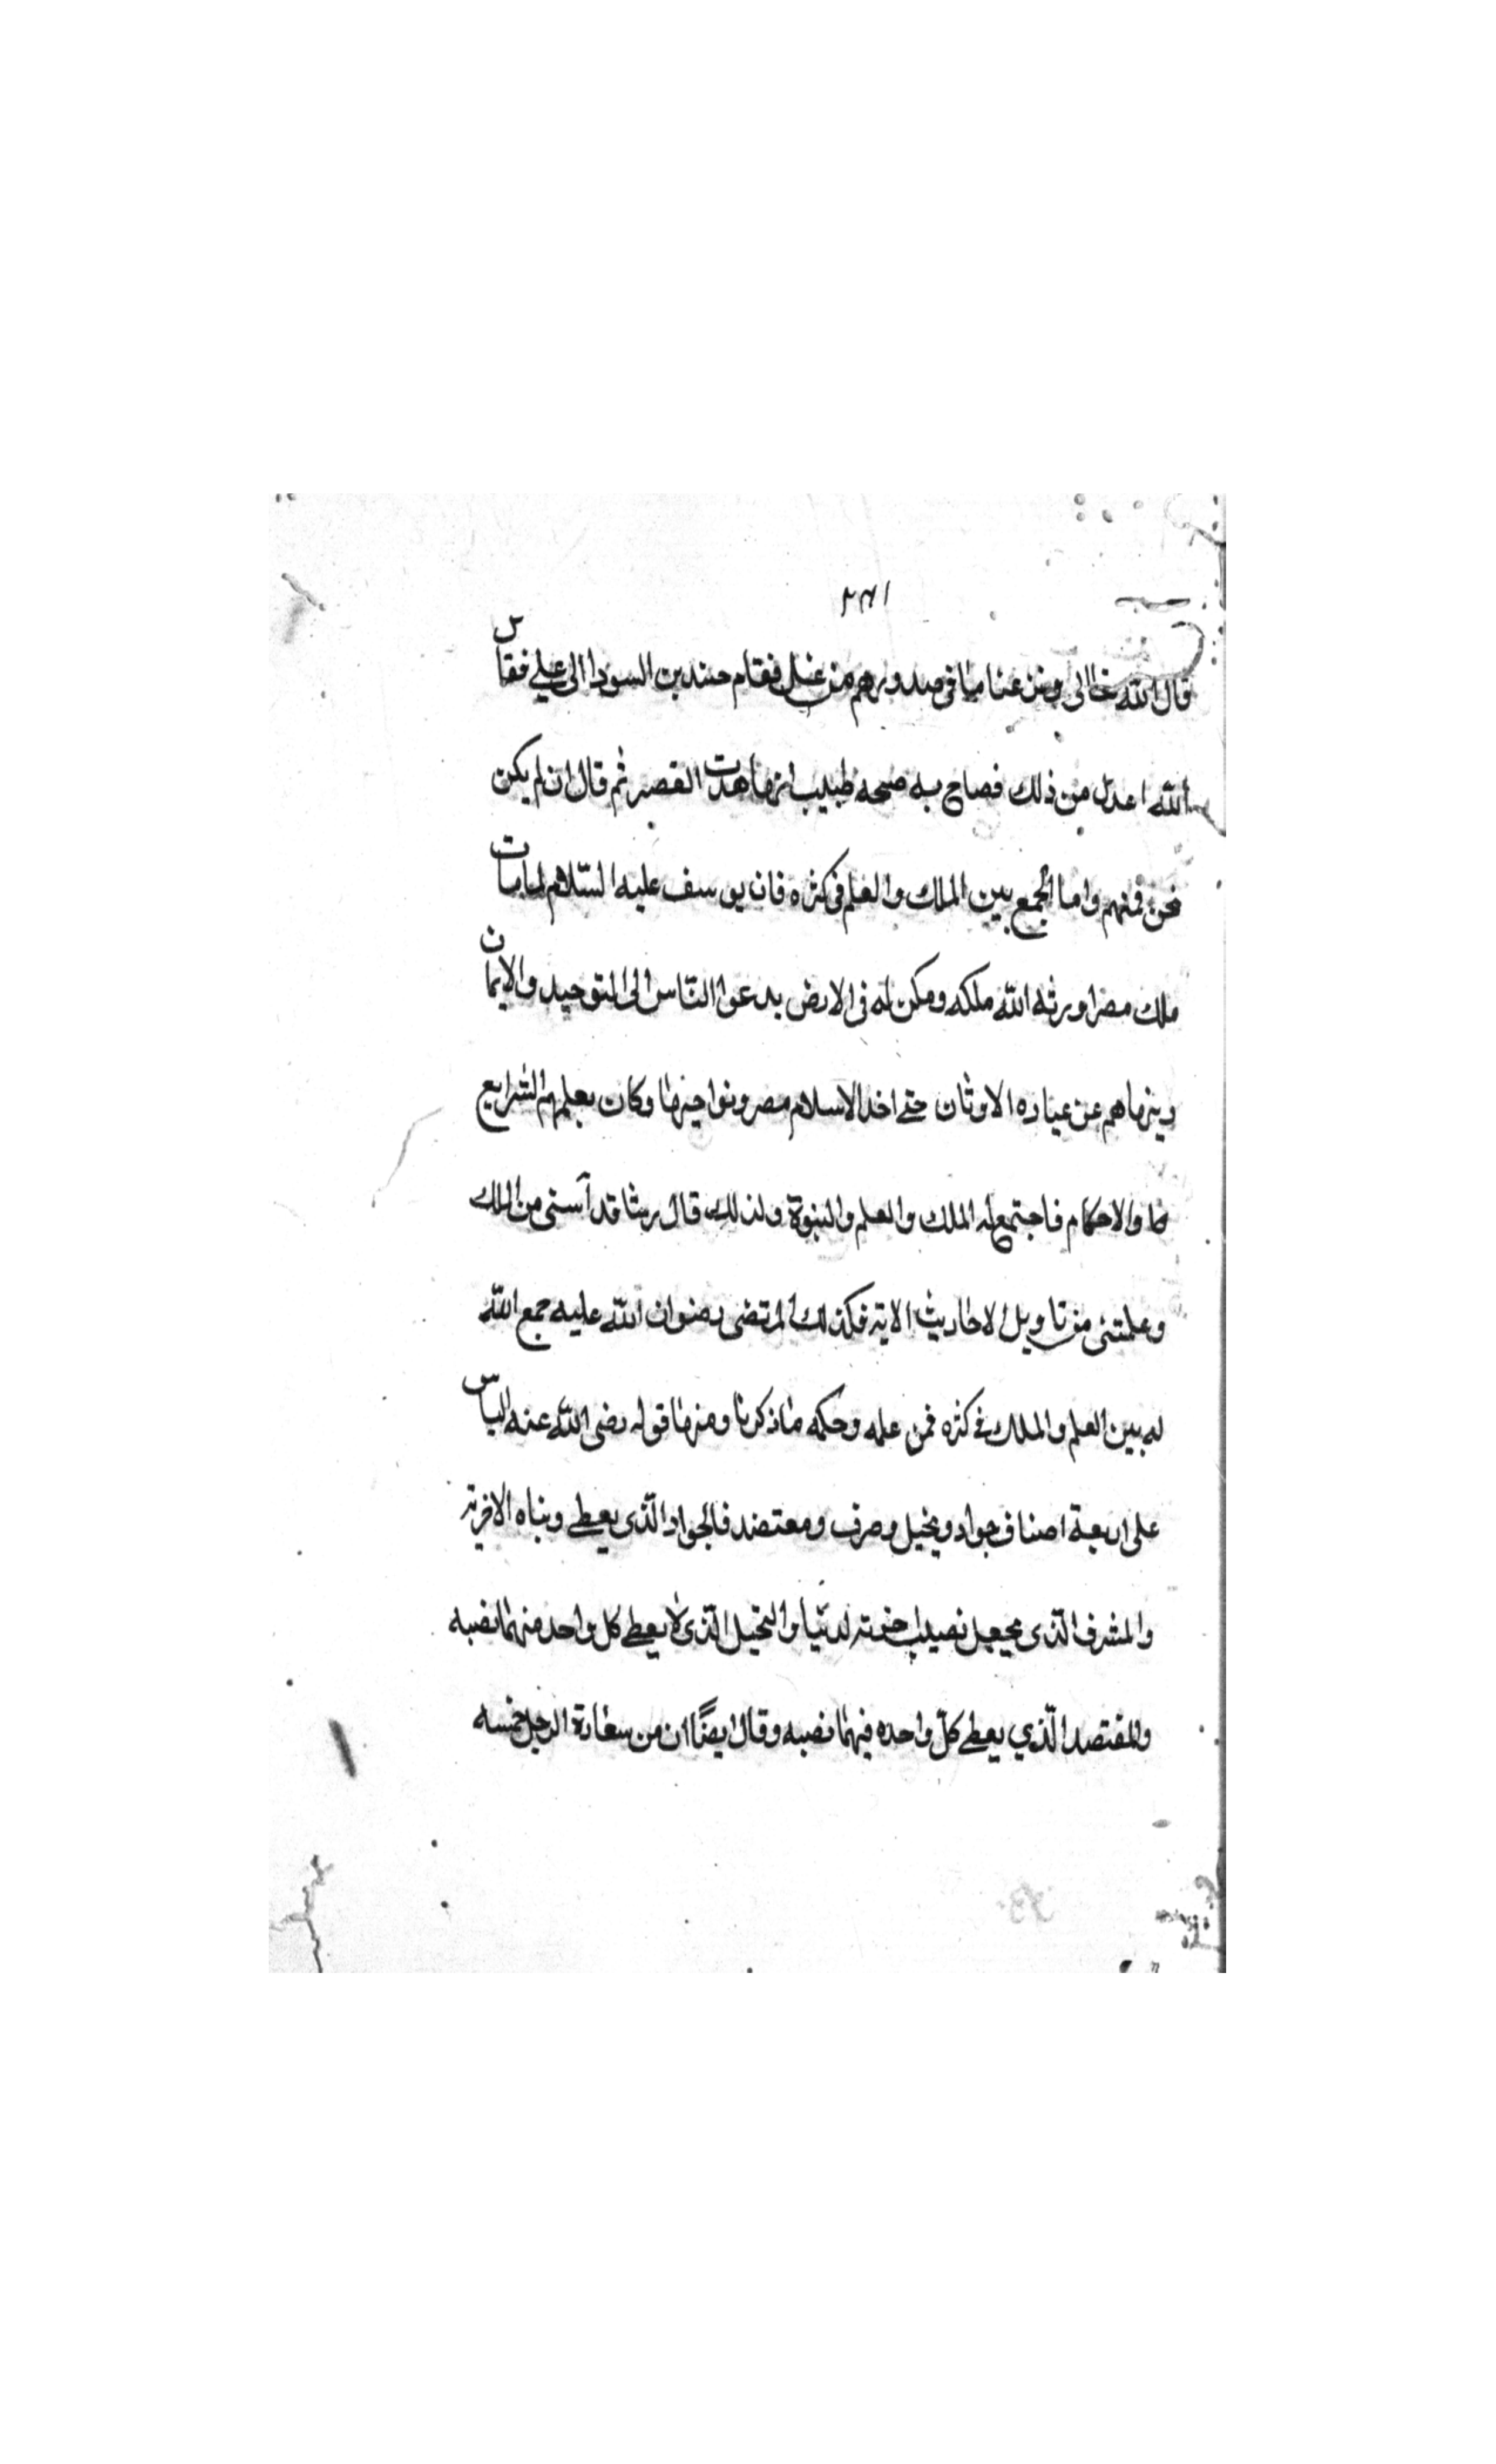 ٢٣١
قال الله تعالى ونزعنا ما فى صدورهم من غل فقام حسد بن السودا الى على فقاس
الله اعدل من ذلك فصاح به صيحه انها هدت القصر ثم قال ان لم يكن
نحن فمنهم واما الجمع بين الملك والعلم فى كثره فان يوسف عليه السّلام لما مات
ملك مصر اورثه الله ملكه ومكن له فى الارض يدعوا النّاس الى التوحيد والايمان
وينهاهم عن عباده الاوثان حتى اخذ الاسلام مصر ونواحيها وكان يعلمهم الشرايع
والاحكام فاجتمع له الملك والعلم والنبوة ولذلك قال ربنا قد آستى من الملك
وعلمتنى من تاويل الاحاديث الاية فكذلك المرتضى رضوان الله عليه جمع الله
له بين العلم والملك فى كثره فمن علمه وحكمه ما ذكرنا ومنها قوله رضى الله عنه الناس
على اربعة اصناف جواد وبخيل ومعتضد فالجواد الّذى يعطى
والمشرف الّذى يجعل نصيب لدنيا والبخيل الّذى لا يعطى كل واحد منهما نصبه
والمقتصد الّذي يعطى كلّ واحده فيهما نصبه وقال ايضًا ان من سعادة الرجل خمسه